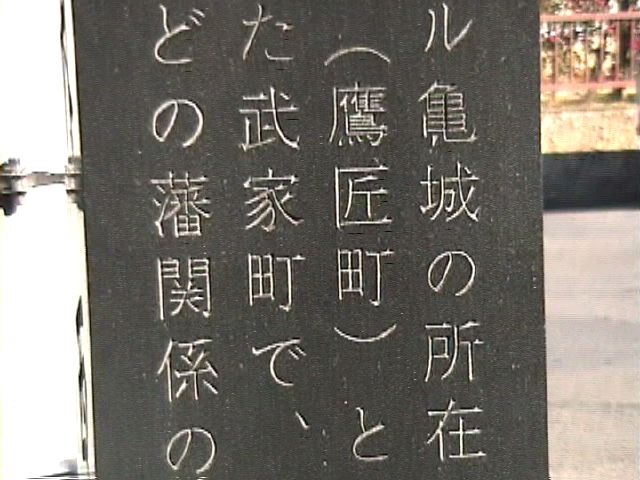 ル亀城の所在
(鷹匠町)と
た武家町で、
どの藩関係の